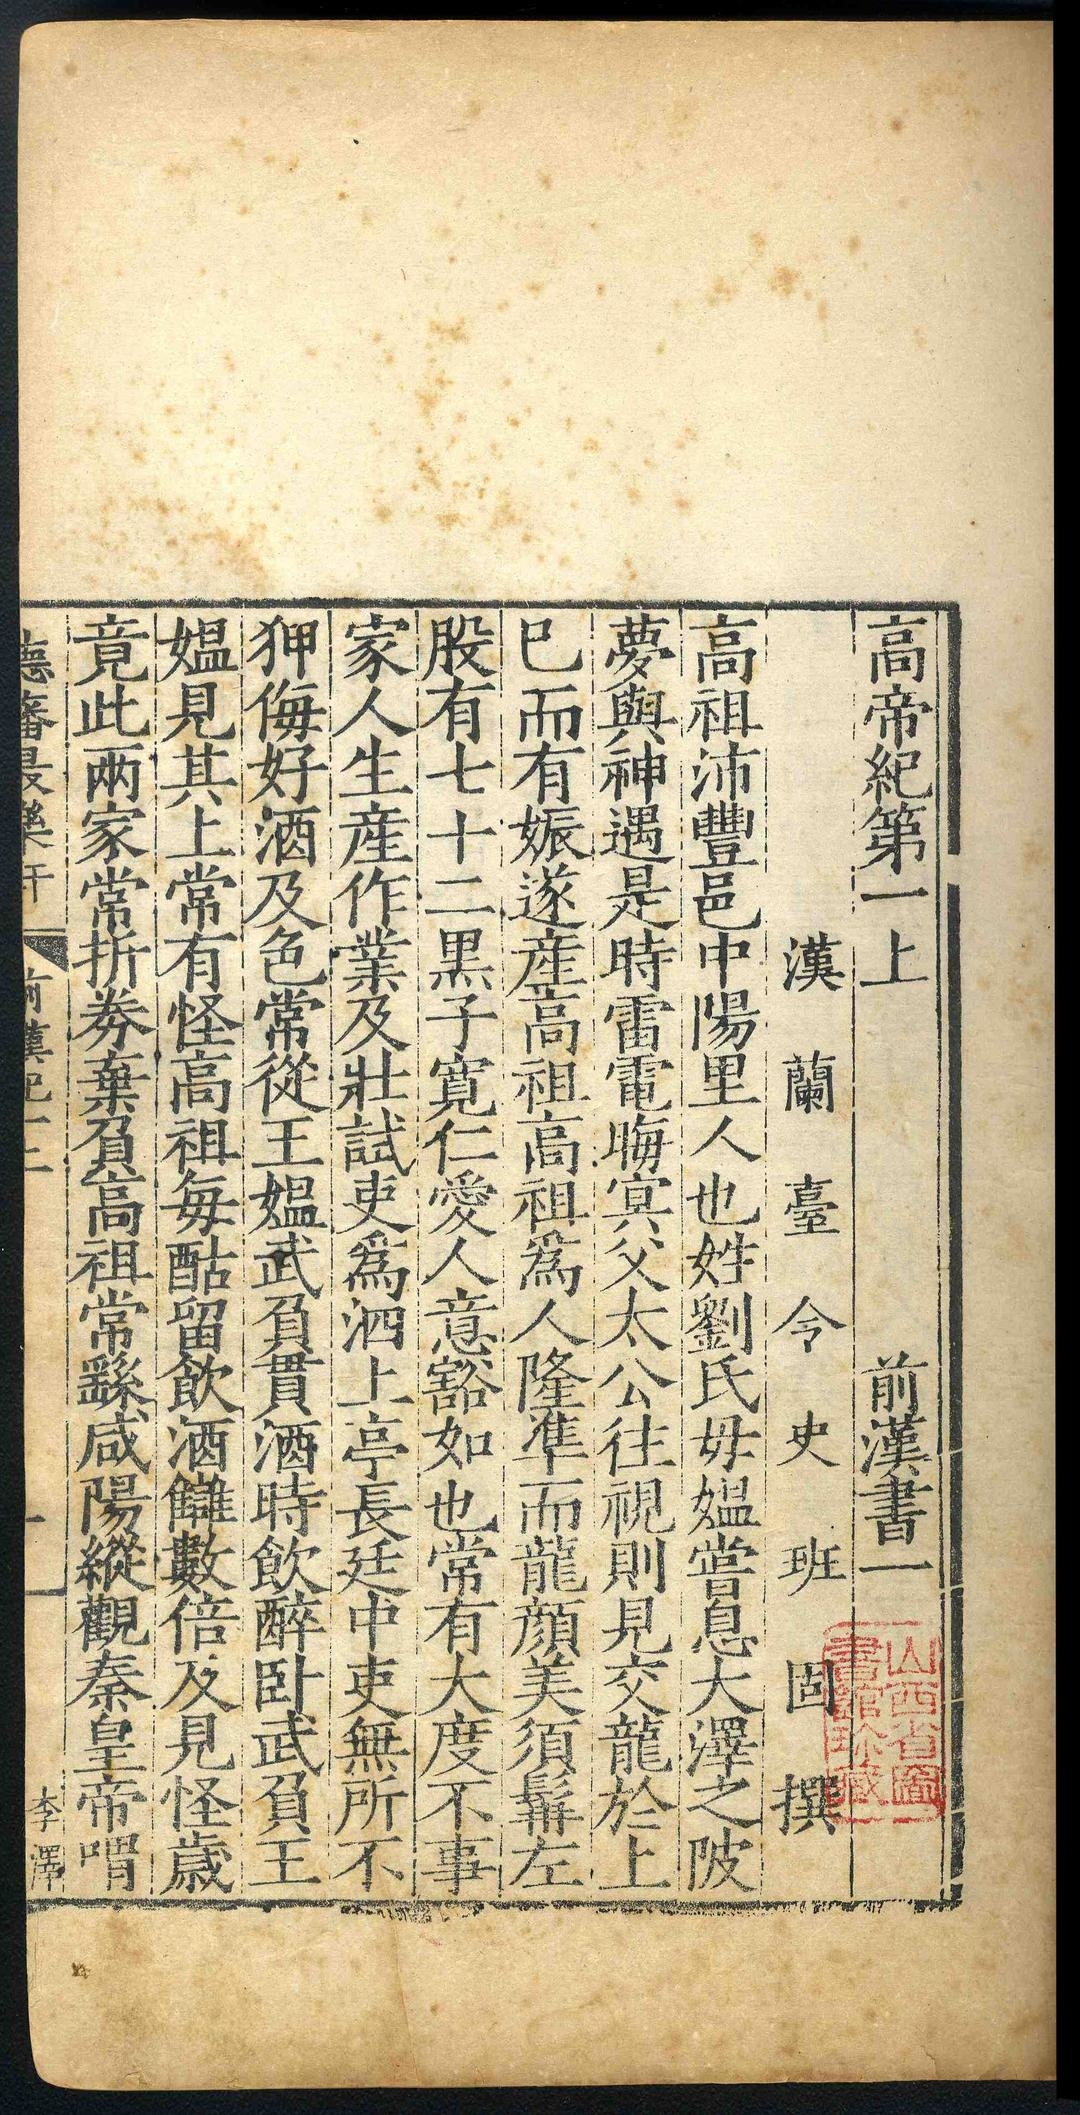 高帝紀第一上 前漢書一
漢蘭臺令史班固撰
高祖沛豐邑中陽里人也姓劉氏母媪嘗息大澤之陂
夢與神遇是時雷電晦㝠父太公往視則見交龍於上
已而有娠遂產高祖高祖爲人隆準而龍顏美須髯左
股有七十二黒子寛仁愛人意豁如也常有大度不事
家人生產作業及壯試吏爲泗上亭長廷中吏無所不
狎侮好酒及色常從王媪武負貰酒時飲醉卧武負王
媪見其上常有怪高祖每酤留飲酒讎數倍及見怪歲
竟此兩家常折券棄負高祖常繇咸陽縱觀秦皇帝喟
德藩最樂軒
前漢紀一上
一
李澤
山西省圖
書館珍藏